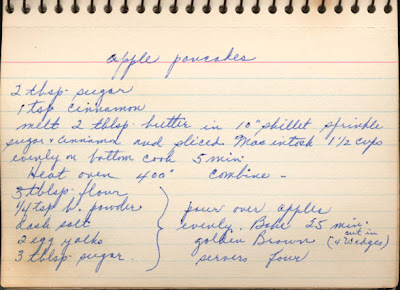 apple pancakes
2 tbsp. sugar
1 tsp cinnamon
melt 2 tblsp butter in 10" skillet sprinkle
sugar & cinnamon and sliced Macintosh 1 1/2 cups
evenly on bottom cook 5 min.
Heat oven 400° combine -
3 tblsp. flour
1/4 tsp b. powder
dash salt
2 egg yolks
3 tblsp. sugar.
pour over apples
evenly. Bake 25 min.
golden Brown (cut in 4 wedges)
servers four